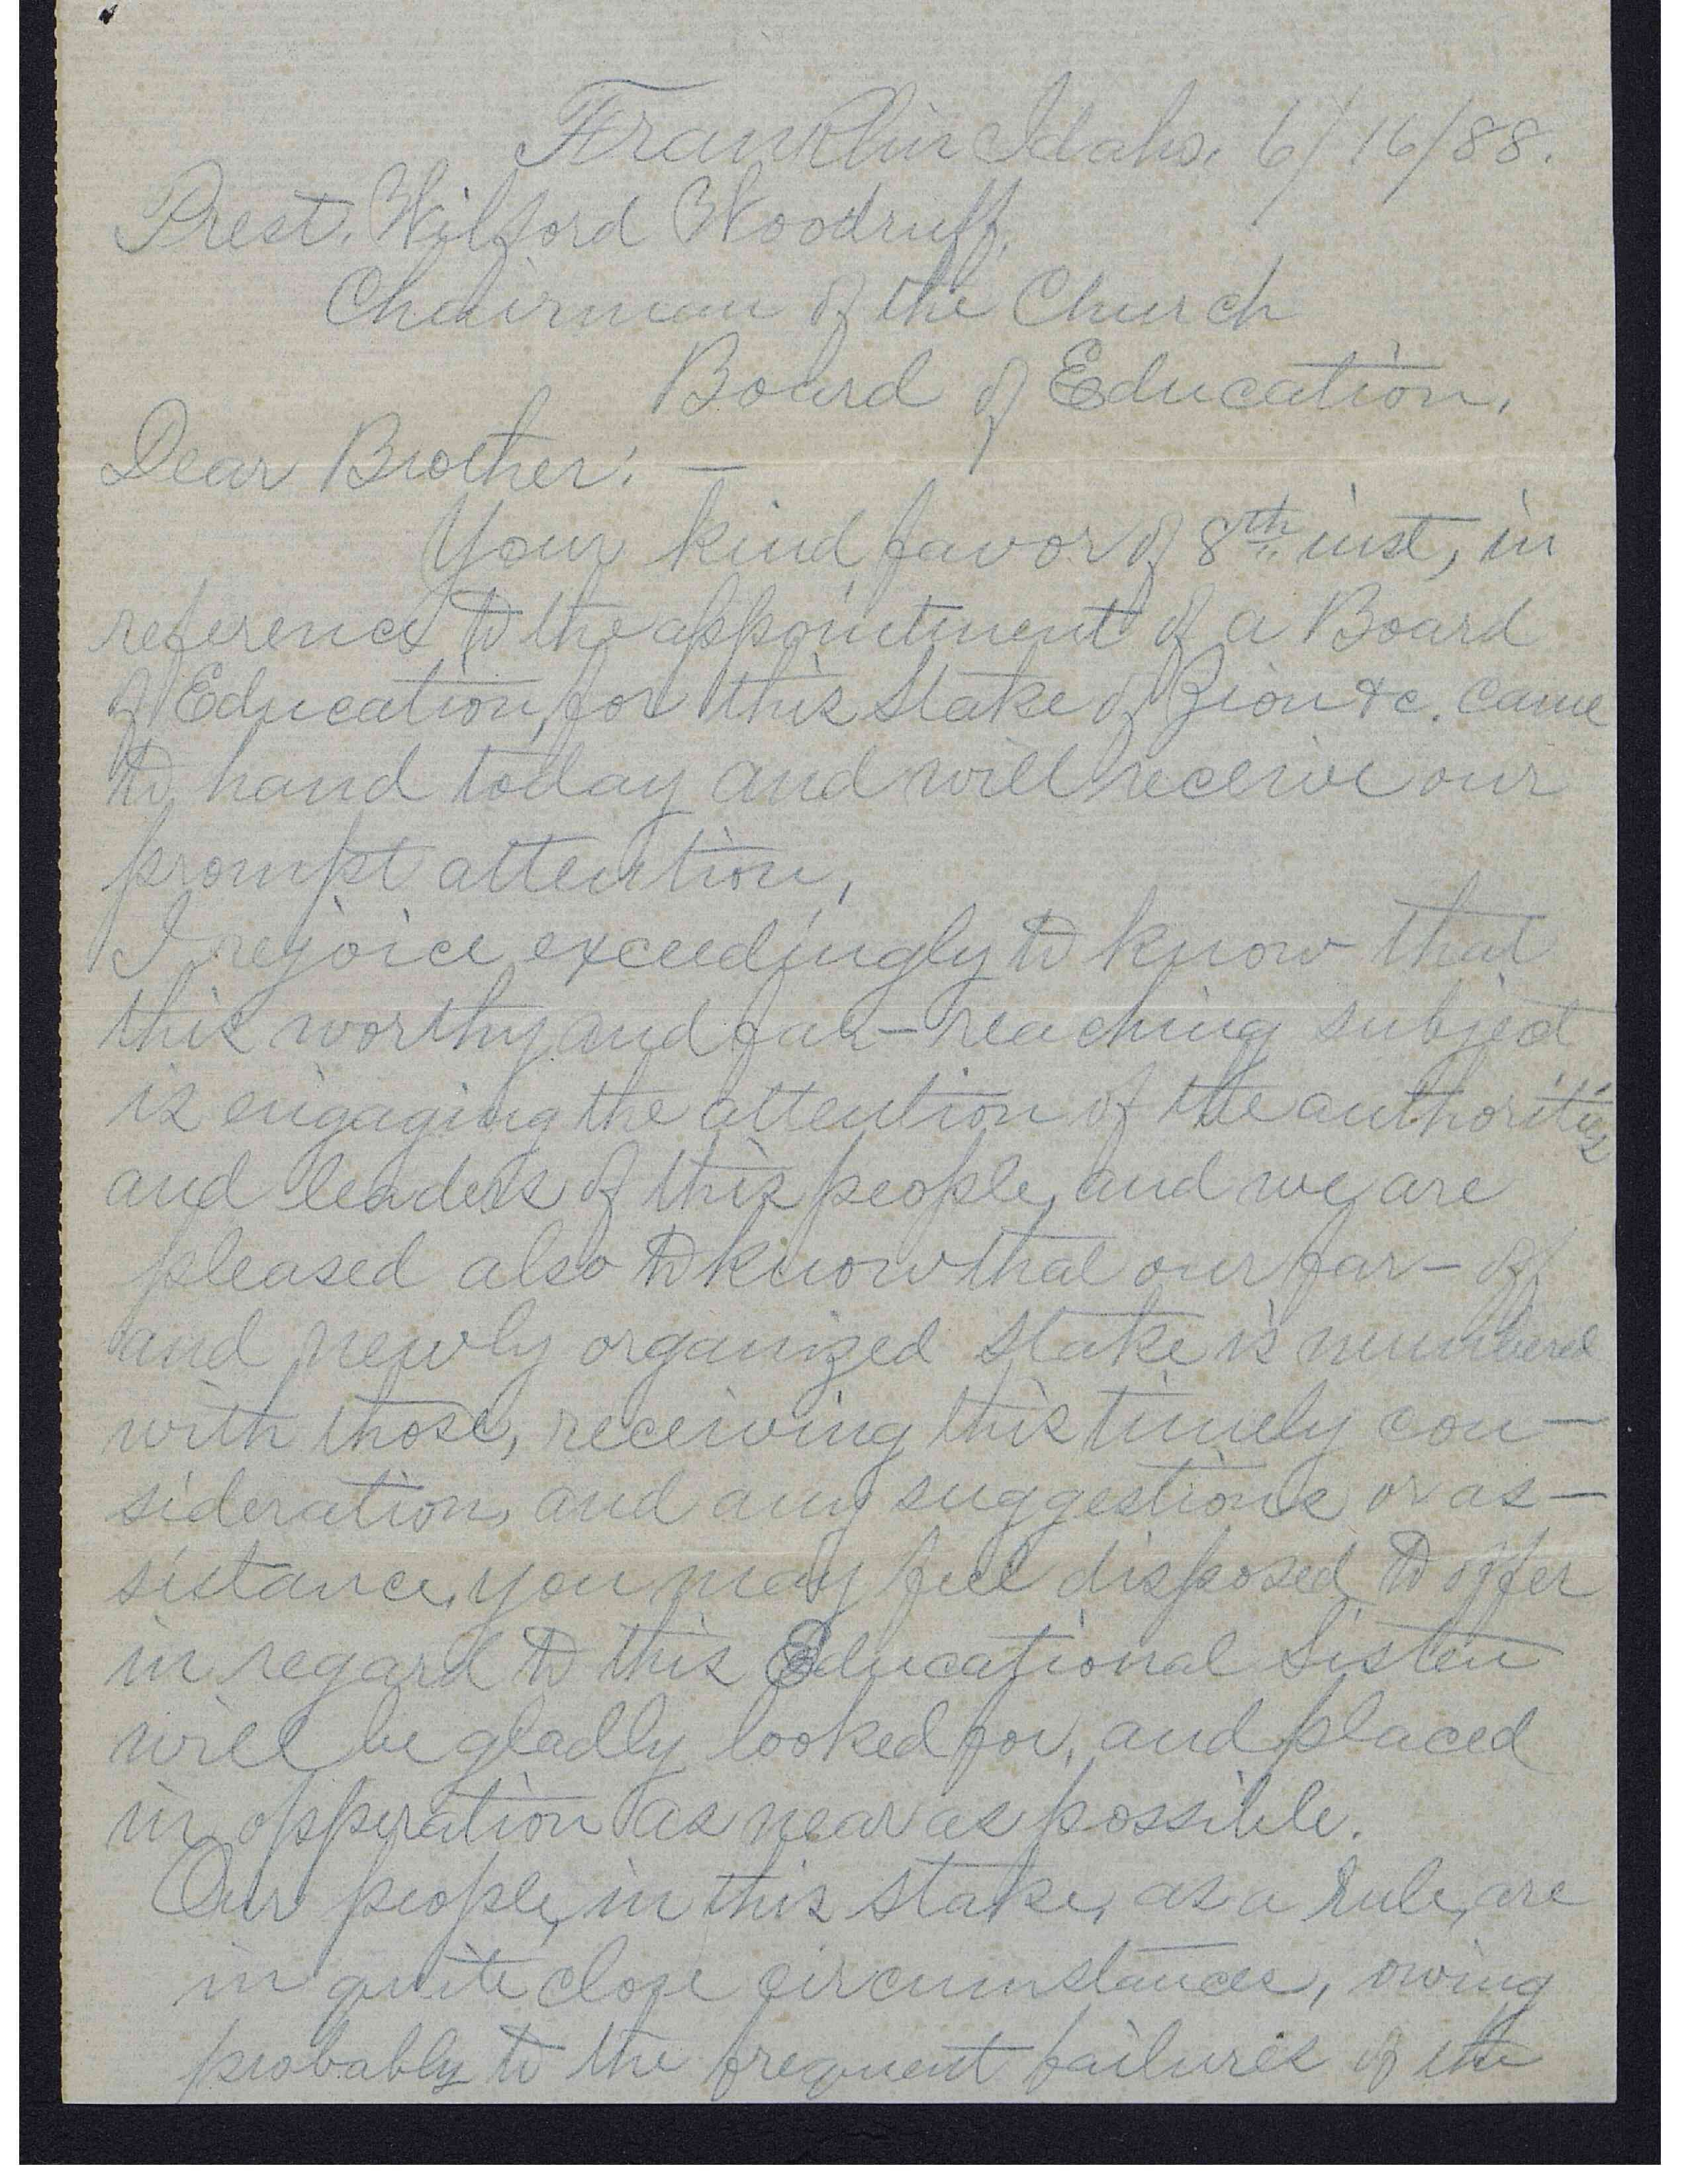 Franklin Idaho, 6/16/88.
Prest. Wilford Woodruff,
Chairman of the Church
Board of Education,
Dear Brother: —
Your kind favor of 8th inst, in
reference to the appointment of a Board
of Education, for this Stake of Zion &c. came
to hand today and will receive our
prompt attention,
I rejoice exceedingly to know that
this worthy and far-reaching subject
is engaging the attention of the authorities
and leaders of this people, and we are
pleased also to know that our far-off
and newly organized Stake is numbered
with those, receiving this timely con-
sideration, and any suggestions or as-
sistance, you may feel disposed to offer
in regard to this Educational Sistem
will be gladly looked for, and placed
in opperation as near as possible.
Our people, in this Stake, as a rule, are
in quite close circumstances, owing
probably to the frequent failures of the